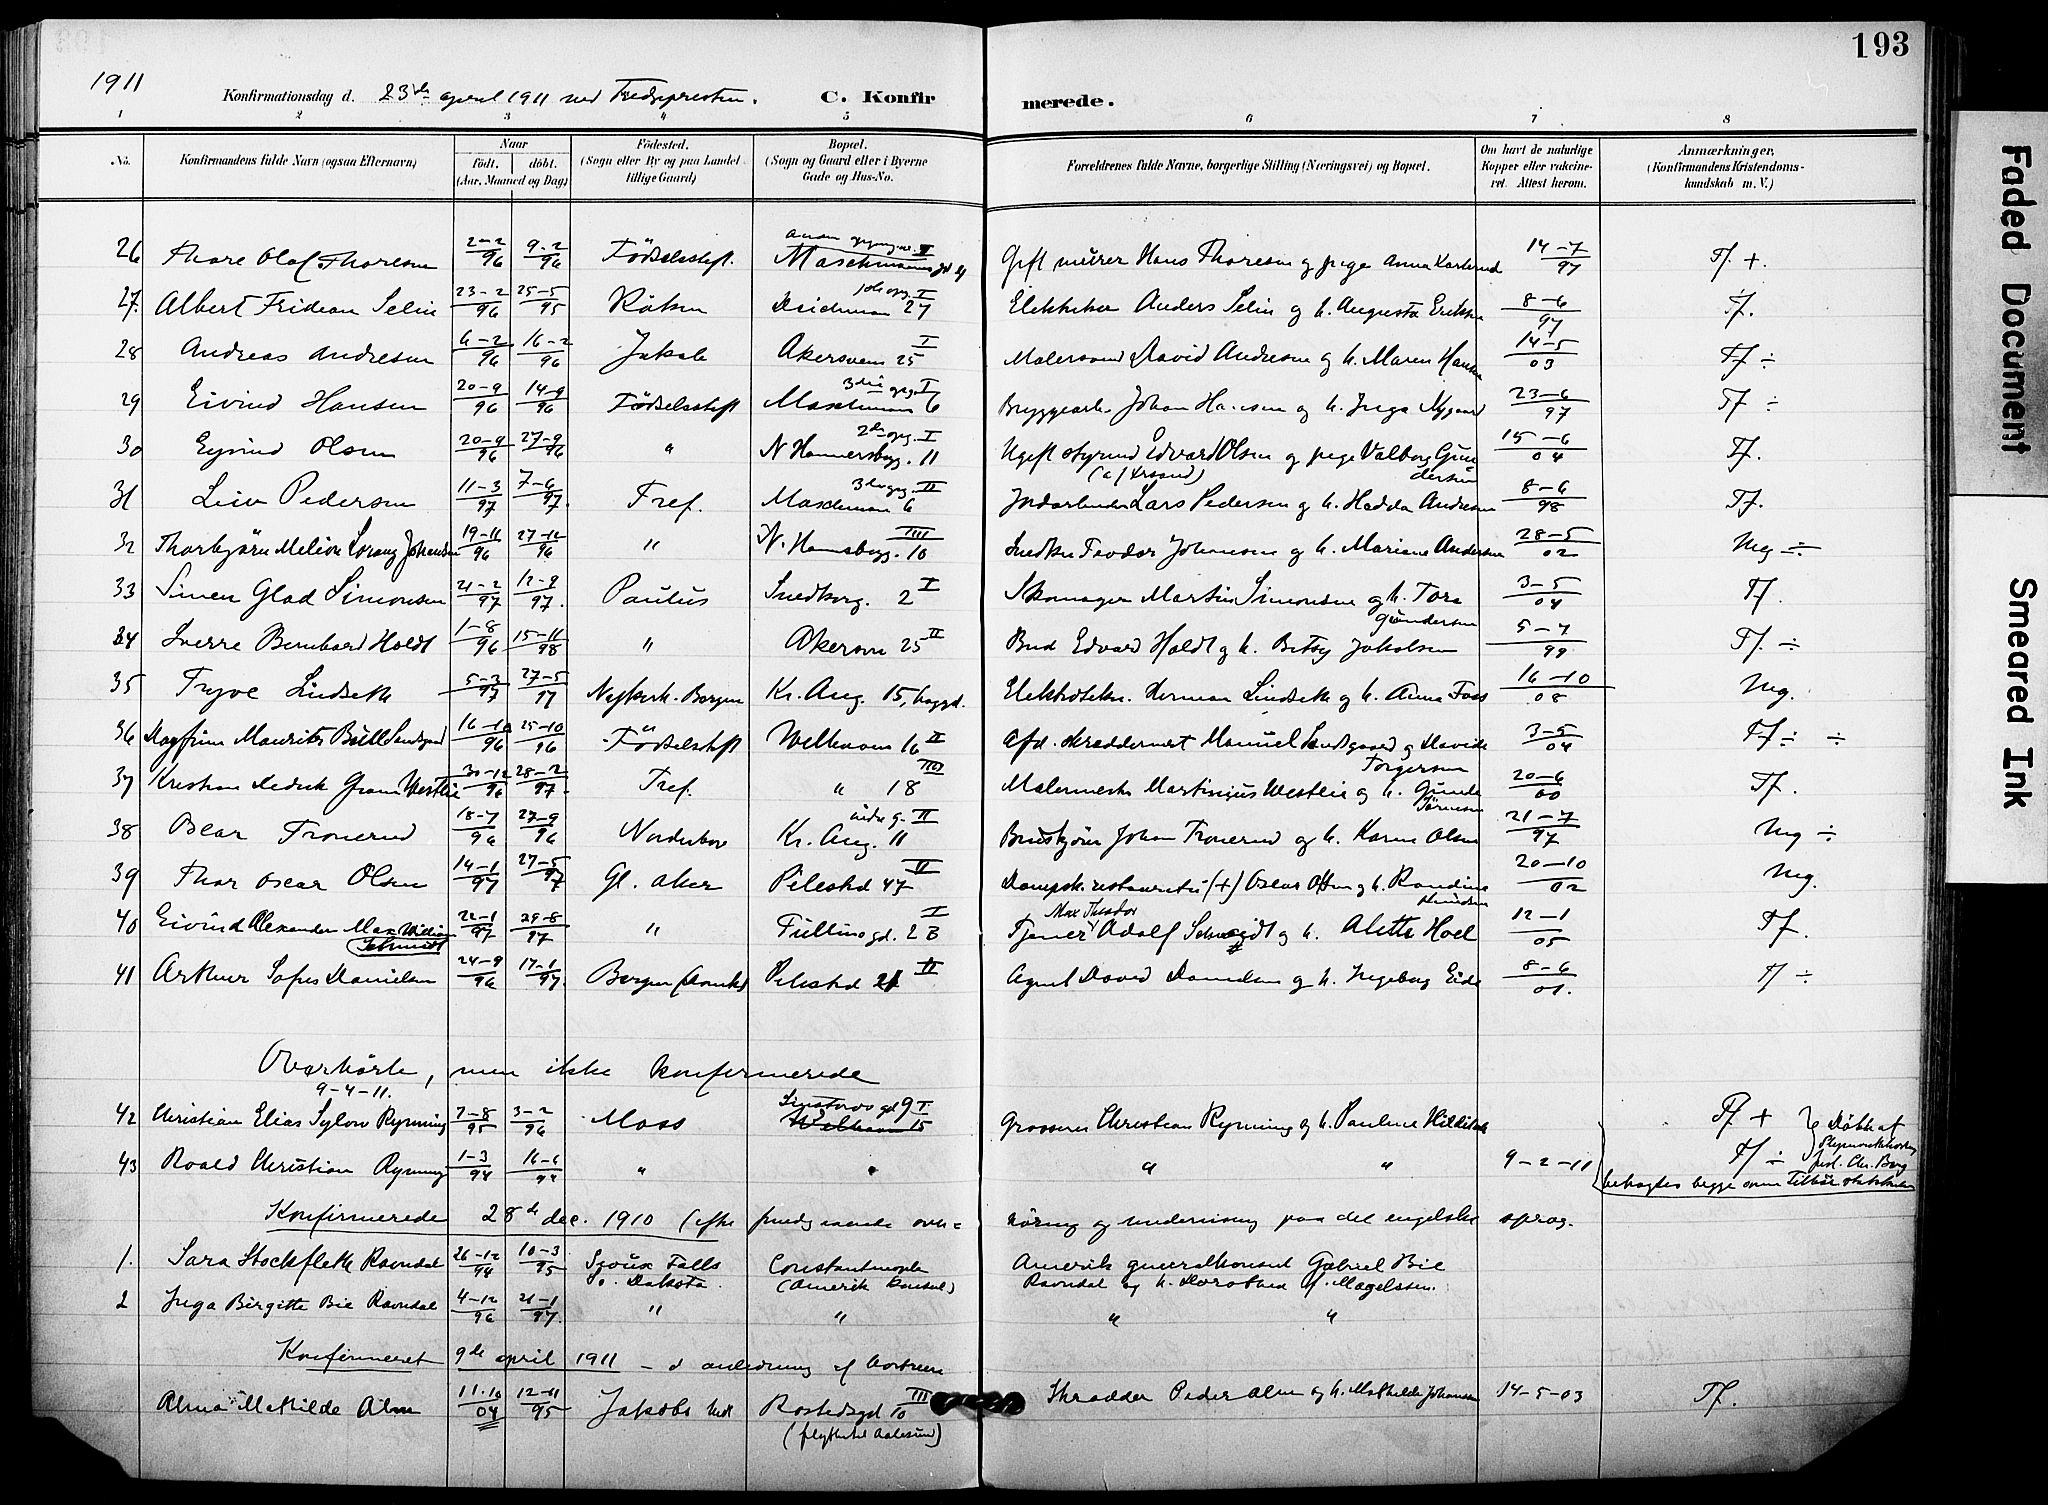 193
1911
Konfirmationsdag d. 23de april 1911 ved Tredjepresten. C. Konfirmerede.
1 2 3 4 5 6 7 8
No. Konfirmandens fulde Navn (ogsaa Efternavn) Naar født. døbt. (Aar, Maaned og Dag) Fødested. (Sogn eller By og paa Landet tillige Gaard) Bopæl. (Sogn og Gaard eller i Byerne Gade og Hus-No. Forældrenes fulde Navne, borgerlige Stilling (Næringsvei) og Bopæl. Om havt de naturlige Kopper eller vakcineret. Attest herom. Anmærkninger, (Konfirmandens Kristendomskundskab m. V.)
26 Thore Olaf Thoresen 2-2 96 9-2 96 Födselsstift. Maschmanns Gift murer Hans Thoresen og pige Anna Karlsrud 14-7 97 Tf. +.
27. Albert Fridean Selin 23-2 96 25-5 95 Röken Deichman 27 I Elektriker Anders Selin og h. Augusta Eriksen 8-6 97 Tf.
28 Andreas Andresen 6-2 96 16-2 96 Jakob Akersveien 25 I Malersvend David Andresen og h. Maren Hansen 14-5 03 Tf ÷
29 Eivind Hansen 20-9 96 14-9 96 Födselsstift Maschmans 6 3die opg. I Bryggearb. Johan Hansen og h. Inga Nygaard 23-6 97 Tf ÷
30 Eyvind Olsen 20-9 96 27-9 96 " N Hammersborg. 11 2den opg. I Ugift styrmd Edvard Olsen og pige Valborg Gundersen 15-6 04 Tf.
31 Leiv Pedersen 11-3 97 7-6 97. Tref. Maschmans 6 3die opg. II Jordarbeider Lars Pedersen og h. Hedda Andresen 8-6 98 Tf.
32 Thorbjörn Melion Lorang Johansen 19-11 96 27-12 96 " N. Hamsborg. 10 IIII Snedker Teodor Johansen og h. Mariane Andersen 28-5 02 Mg ÷
33 Simen Glad Simonsen 21-2 97 12-9 97. Paulus Snedkerg. 2 I Skomager Martin Simonsen og h. Tora Gundersen 3-5 04 Tf.
34 Sverre Bernhard Holdt 1-8 96 15-11 98 " Akersvn 25 II Bud Edvard Holdt og h. Betsy Jakobsen 5-7 99 Tf. ÷
35 Trygve Lindseth 5-3 97 27-5 97 Nykirk. Bergen Kr. Aug. 15, baggd. Elektrotekn. Herman Lindseth og h. Anna Foss 16-10 08 Mg.
36 Dagfinn Maurits Bull Lundgaard 16-10 96 25-10 96 Födselsstift Welhavens 16 II Afd. skreddermest Manuel Lundgaard og Davida Torgersen 3-5 04 Tf ÷ ÷
37 Kristian Fredrik Gram Westlie 30-12 96 28-2 97. Tref. " 18 IIII Malermester Martinius Westlie og h. Gunda Törnesen 20-6 00 Tf.
38 Bear Tronerud 18-7 96 27-9 96 Norderhov Kr. Aug. 11 indre g. II Brödkjörer Johan Tronerud og h. Karen Olsen 21-7 97 Mg ÷
39 Thor Oscar Olsen 14-1 97 27-5 97 Gl. Aker Pilestrd 47 II Dampsk. restauratör (+) Oscar Olsen og h. Randine Knudsen 20-10 02 Mg.
40 Eivind Alexander Max William Schmidt 22-1 97 29-8 97 " Tullinsgd. 2 B I Tjener Max Theodor Adolf Schmidt og h. Alette Hoel 12-1 05 Tf.
41 Arthur Sofus Danielsen 24-9 96 17-1 97. Bergen (Domk) Pilestrd 21 II Agent David Danielsen og h. Ingeborg Eide 8-6 01. Tf ÷
Overhörte, men ikke konfirmerede
9-4-11.
42 Christian Elias Sylow Rynning 7-8 95 3-2 96 Moss 9 I Welhavn 15 Grosserer Christian Rynning og h. Pauline Hilditch Tf +
43 Roald Christian Rynning 1-3 94 16-6 94 " " " " 9-2-11 Tf ÷
Döbt af Plymouthbroder pred. Chr. Berg
betragtes begge som
Konfirmerede 28de dec. 1910 (efter foregaaende overhöring og undervisning paa det engelske sprog.
1. Sara Stockfleth Ravndal 26-12 94 10-3 95 Sioux Falls S. Dakota Constantinopel (Amerik konsul) Amerik generalkonsul Gabriel Bie Ravndal og h. Dorothea f. Magelssen.
2 Inga Birgitte Bie Ravndal 4-12 96 21-1 97. " " " "
Konfirmeret 9de april 1911 – i anledning af bortreise
Alma Mathilde Alm 11-10 04 12-11 95 Jakobs kirk Rostedsgd 10 III (flytter til Aalesund) Skrædder Peder Alm og h. Mathilde Johansen 14-5-03 Tf.
Faded Document
Smeared Ink